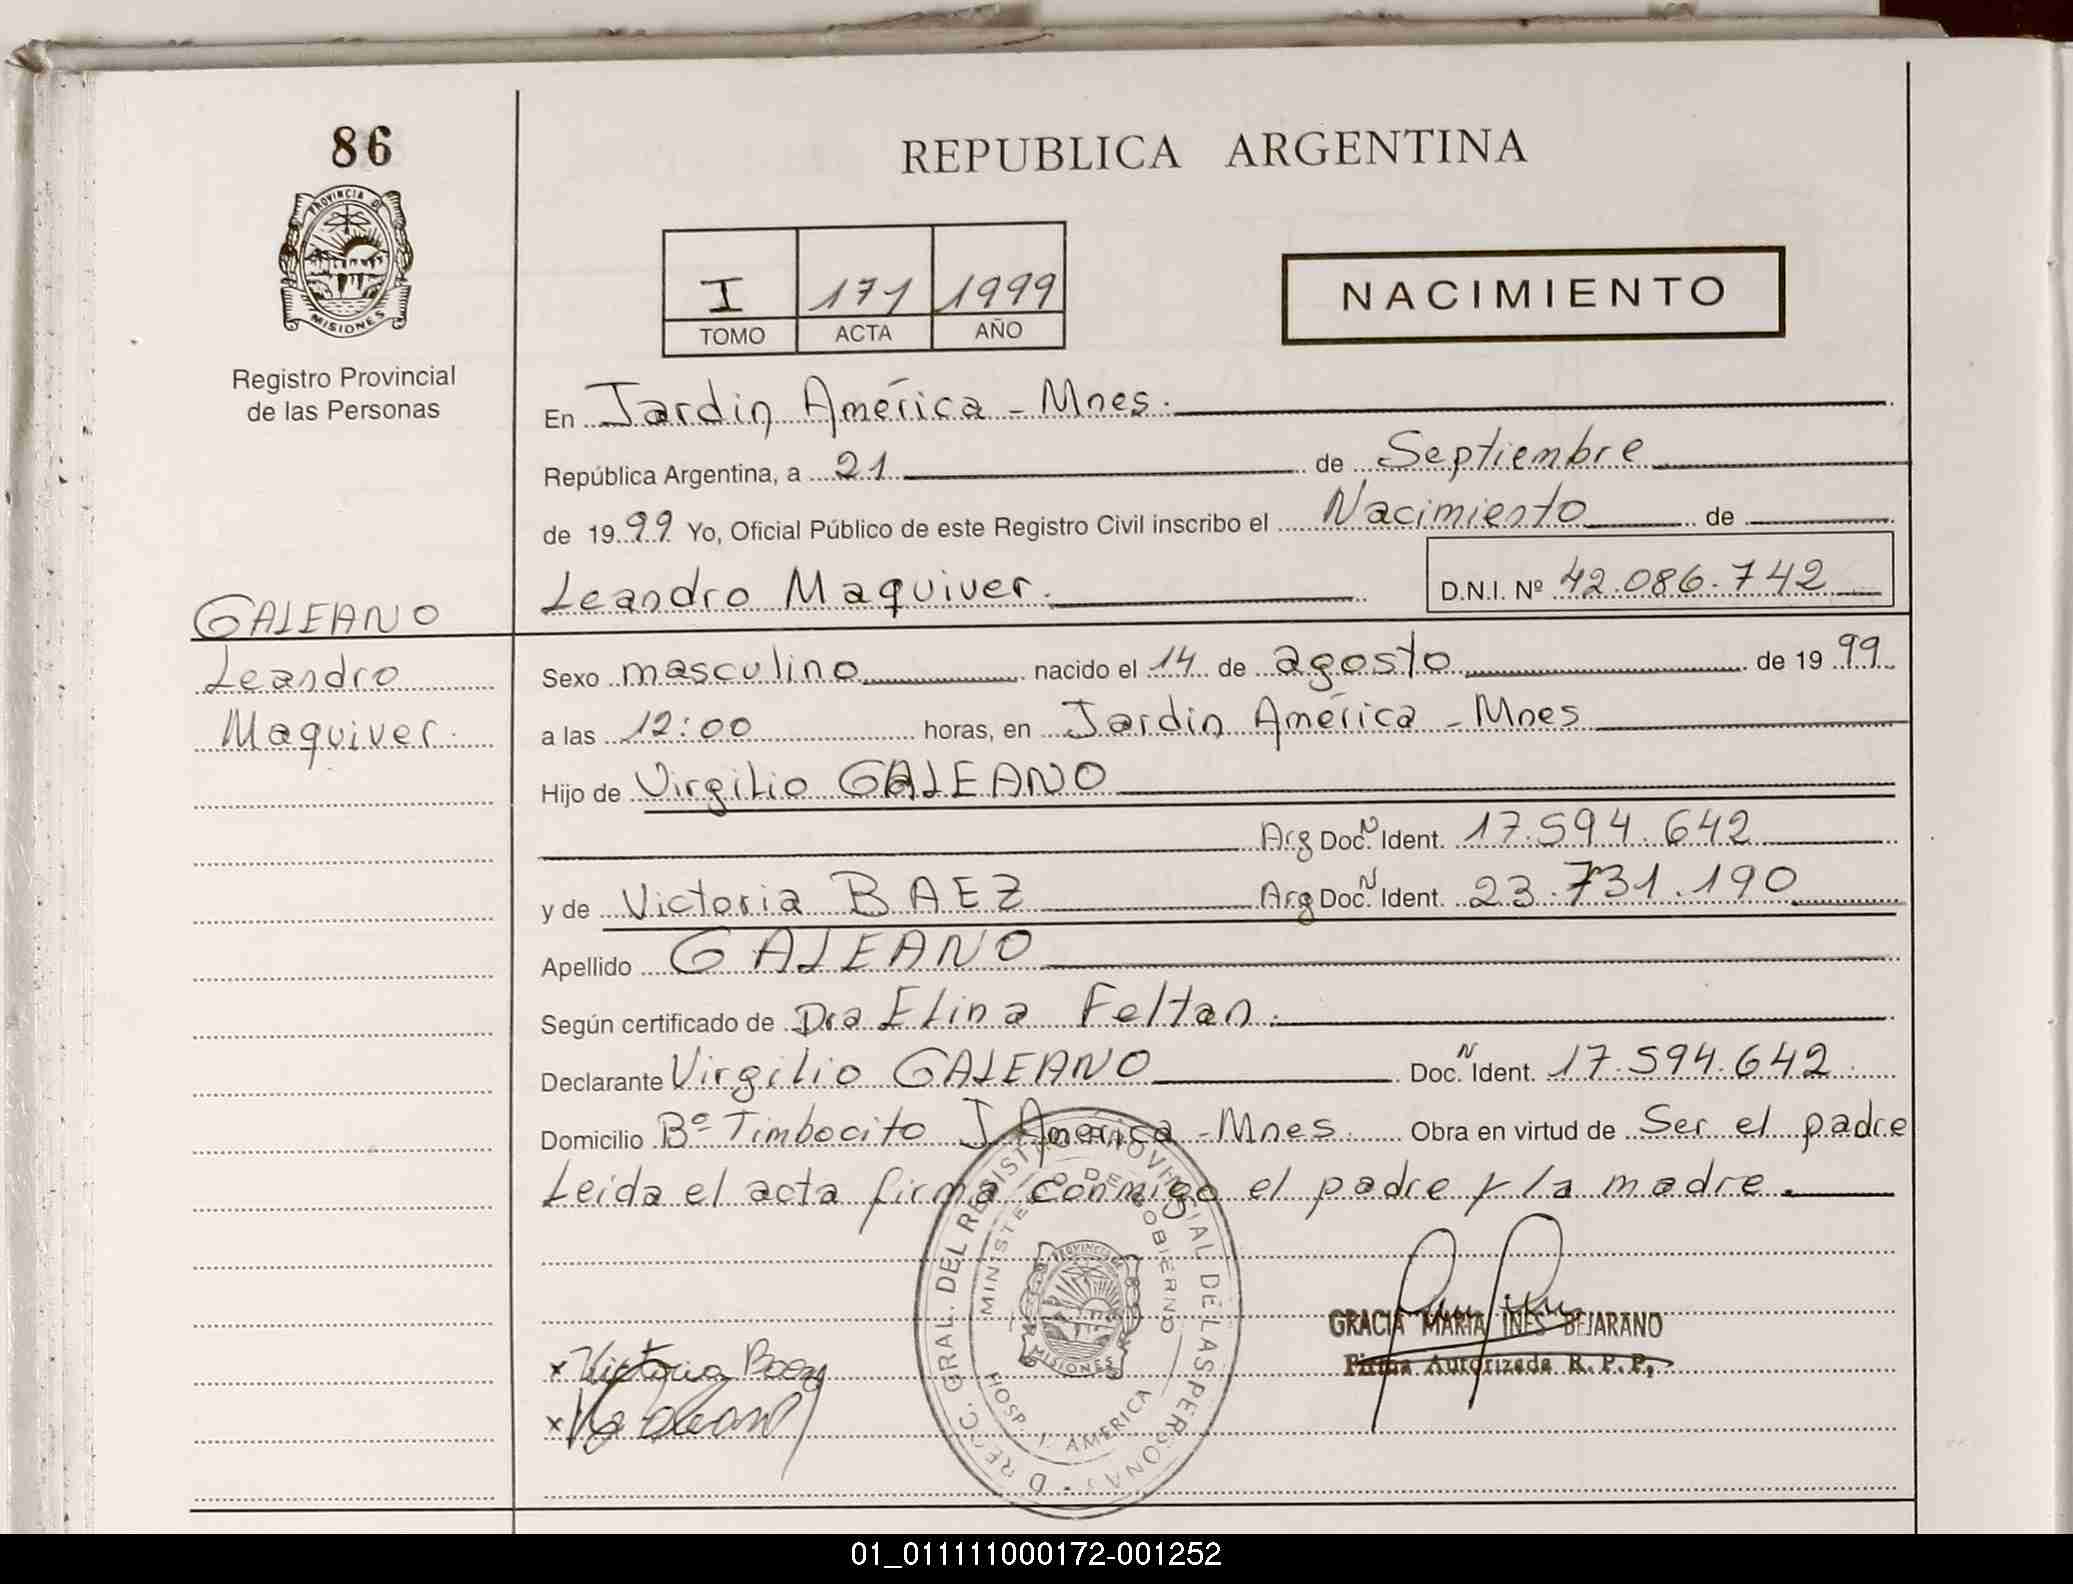 86
PROVINCIA DE
MISIONES
Registro Provincial
de las Personas
REPUBLICA ARGENTINA
I 171 1999
TOMO ACTA AÑO
NACIMIENTO
En Jardin América - Mnes.
República Argentina, a 21 de Septiembre
de 1999 Yo, Oficial Público de este Registro Civil inscribo el Nacimiento de
Leandro Maquiver. D.N.I. Nº 42.086.742
GALEANO
Leandro
Maquiver.
Sexo masculino nacido el 14 de agosto de 1999
a las 12:00 horas, en Jardin América - Mnes
Hijo de Virgilio GALEANO
Arg Doc. N Ident. 17.594.642
y de Victoria BAEZ Arg Doc. N Ident. 23.731.190
Apellido GALEANO
Según certificado de Dra Elina Feltan.
Declarante Virgilio GALEANO Doc. N Ident. 17.594.642.
Domicilio Bº Timbocito J América - Mnes. Obra en virtud de Ser el padre
Leida el acta firma conmigo el padre y la madre.
DIRECC. GRAL. DEL REGISTRO PROVINCIAL DE LAS PERSONAS
MINISTERIO DE GOBIERNO
PROVINCIA DE
MISIONES
HOSP. J. AMERICA
GRACIA MARIA INES BEJARANO
Firma Autorizada R. P. P.
x Victoria Baez
x
01_011111000172-001252